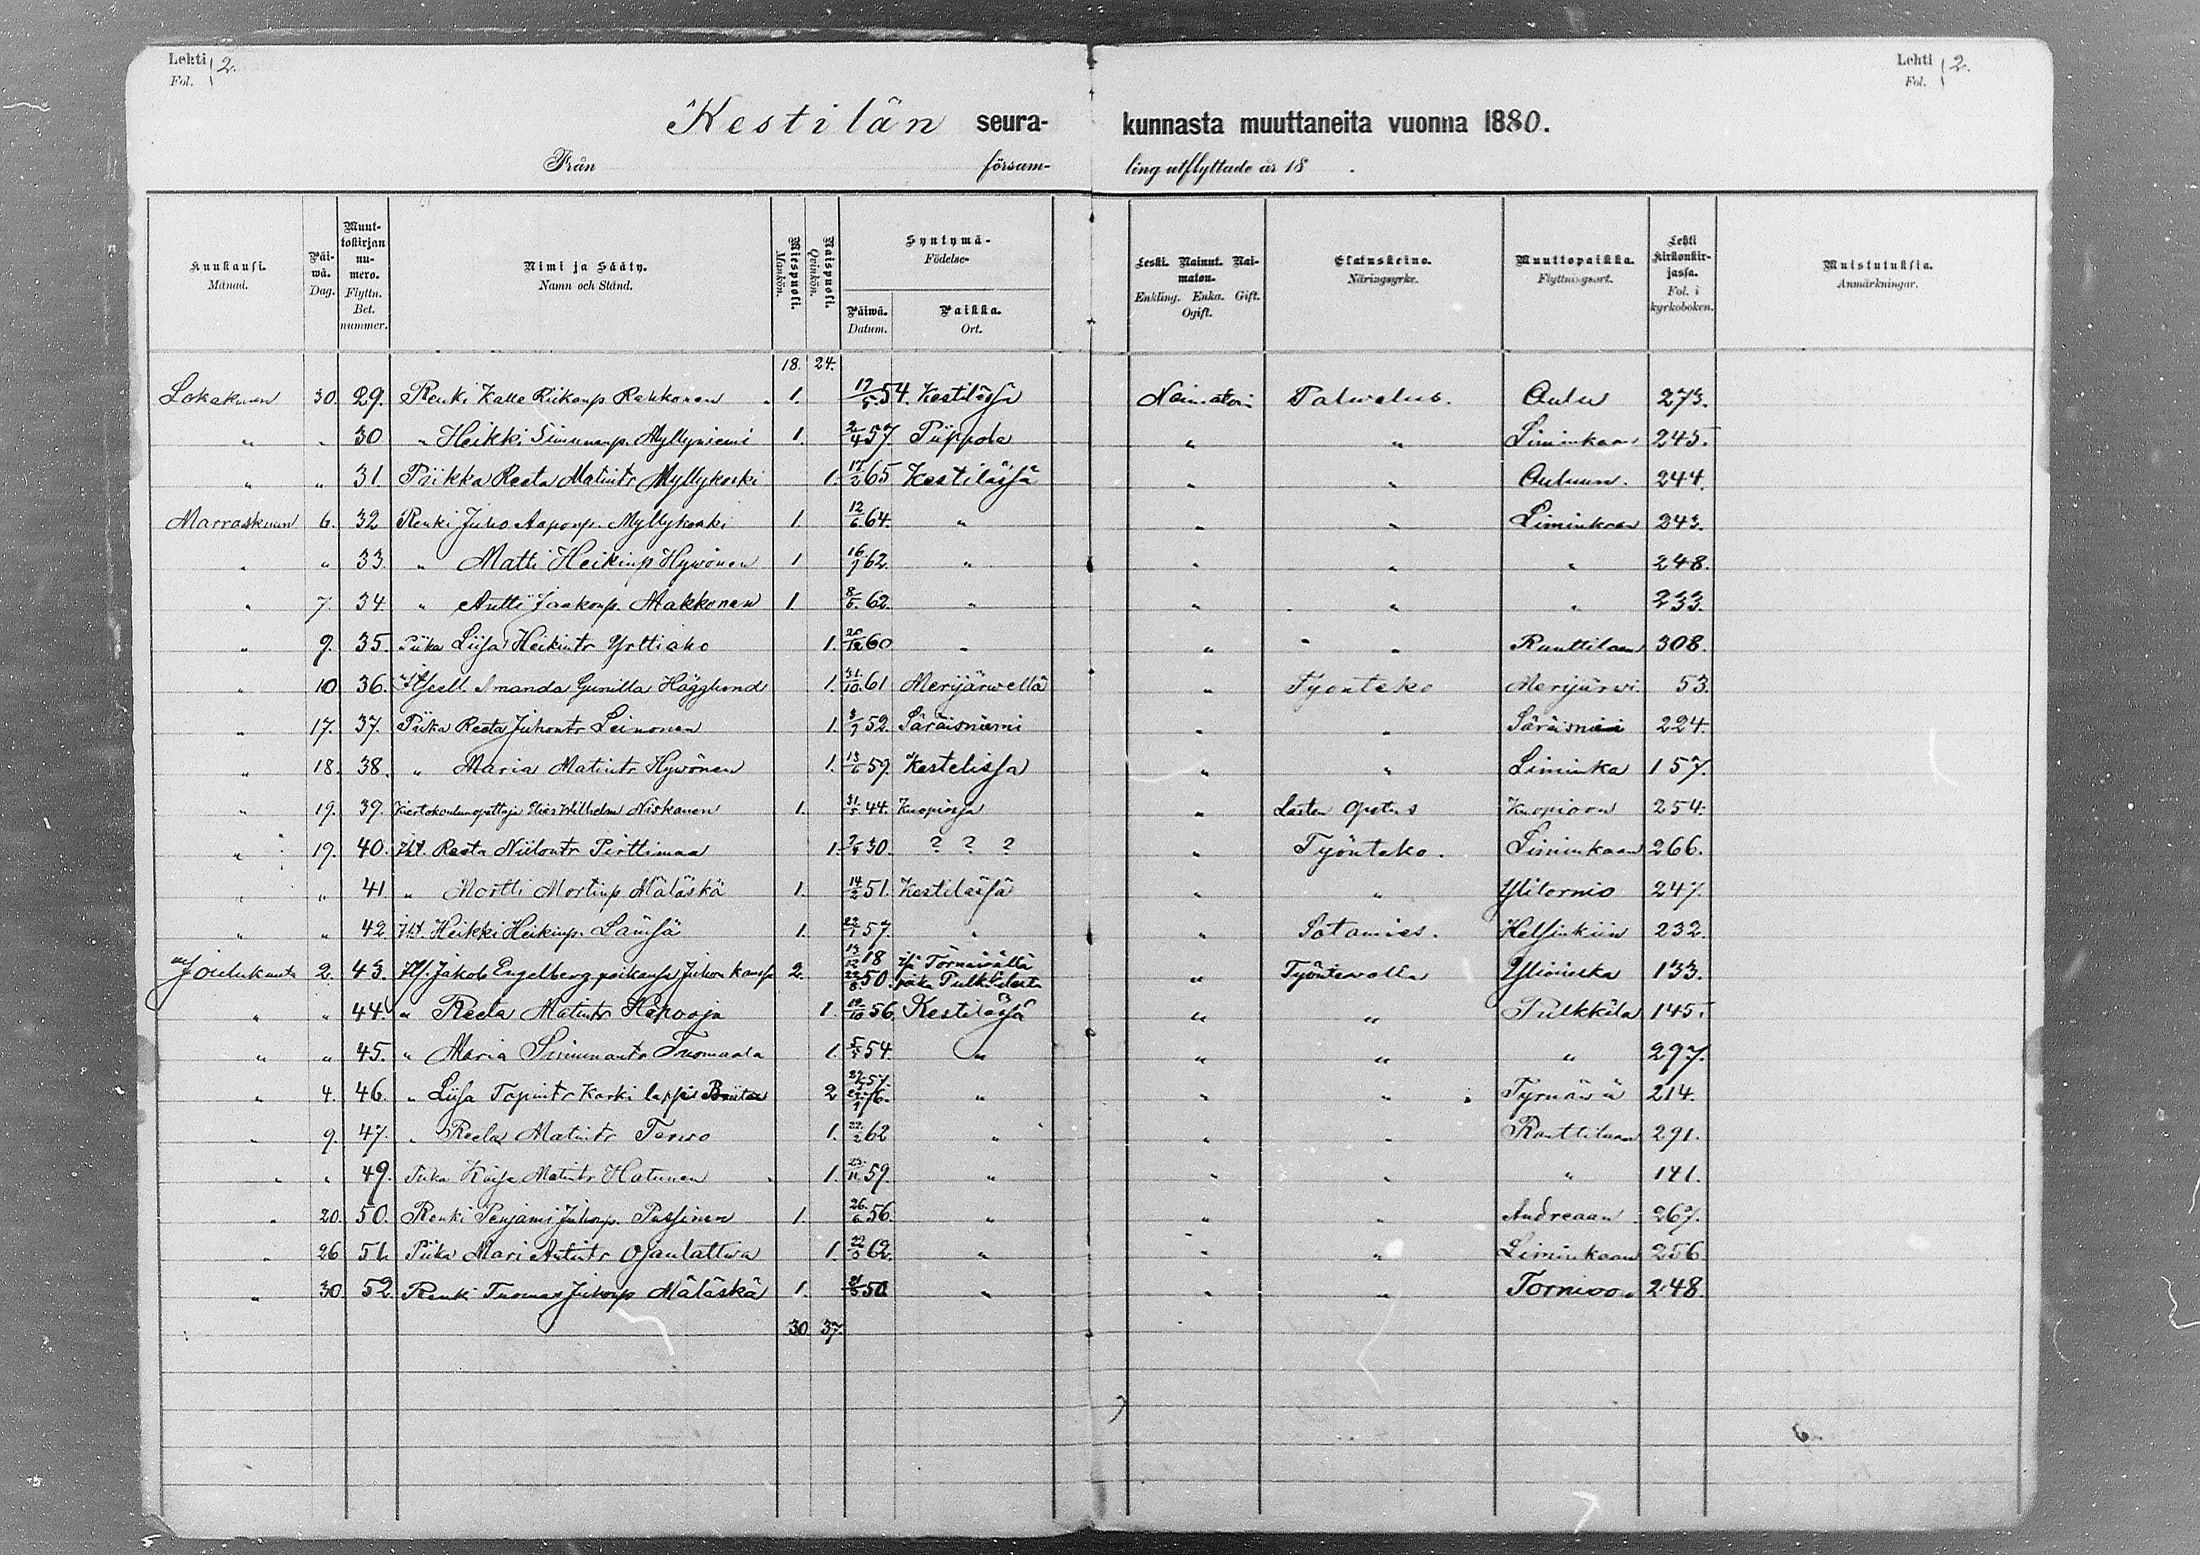 Lehti 2.
Fol.
Lehti 2.
Fol.
Kestilän seura- kunnasta muuttaneita vuonna 1880.
Från församling utflyttade år 18 .
Kuukausi. Månad.
Päiwä. Dag.
Muuttokirjan numero. Flyttn. Bet. nummer.
Nimi ja Sääty. Namn och Stånd.
Miespuoli. Mankön.
Naispuoli. Qvinkön.
Syntymä- Födelse-
Päiwä. Datum.
Paikka. Ort.
Leski. Nainut. Naimaton. Enkling. Enka. Gift. Ogift.
Elatuskeino. Näringsyrke.
Muuttopaikka. Flyttningsort.
Lehti kirkonkirjassa. Fol. i kyrkoboken.
Muistutuksia. Anmärkningar.
18. 24.
Lokakuun 30. 29. Renki Kalle Riikonp. Rekkonen 1. 54. Kestilässä Naimaton Palwelus. Oulu 273.
" " 30 " Heikki Simunanp. Myllyniemi 1. 2/4 57 Piippola " " Liminkaan 245.
" " 31. Piikka Reeta Matintr Myllykoski 1. 65 Kestilässä " " Ouluun. 244.
Marraskuun 6. 32 Renki Juho Aaponp. Myllykoski 1. 12/6 64. " " " Liminkaan 243.
" " 33. " Matti Heikinp Hywönen 1 62. " " " " 248.
" 7. 34. " Antti Jaakonp. Makkonen 1. 62. " " " " 233.
" 9. 35. Piika Liisa Heikintr Yrttiaho 1. 60 " " " Ranttilaan 308.
" 10 36. Itsell. Amanda Gunilla Hägglund 1. 31/10 61 Merijärwellä " Työnteko Merijärwi. 53.
" 17. 37. Piika Reeta Juhontr Leinonen 1. 52. Säräisniemi " " Säräisniemi 224.
" 18. 38. " Maria Matintr Hywönen 1. 59. Kestelissa " " Liminka 157.
" 19. 39. Kiertokoulunopettaja Elias Wilhelm Niskanen 1. 44. Kuopiossa " Lasten opetus Kuopioon 254.
" 19. 40. Itl. Reeta Niilontr Pirttimaa 1. 30. ? ? ? " Työnteko. Liminkaan 266.
" " 41. " Mortti Mortinp Mäläskä 1. 14/2 51. Kestilässä " " Ylitornio 247.
" " 42 Itl. Heikki Heikinp. Lämsä 1. 57. " " Sotamies. Helsinkiin 232.
Joulukuuta 2. 43. Its. Jakob Engelberg poikansa Juhon kanssa 2. 18 50. isä Torniowalta poika Pulkkilasta " Työntewällä Ylivieska 133.
" " 44. " Reeta Matintr Hapooja 1. 19/10 56. Kestilässä " " Pulkkila 145.
" " 45. " Maria Simunantr Tuomaala 1. 5/5 54. " " " " 297.
" 4. 46. " Liisa Tapintr Karki 2 57. 76. " " " Tyrnäwä 214.
" 9. 47. " Reeta Matintr Terwo 1. 22/2 62 " " " Ranttilaan 291.
" " 49. Piika Kaisa Matintr Hatunen 1. 23/11 59. " " " " 141.
" 20. 50. Renki Penjami Juhonp. Passinen 1. 26/6 56. " " " Andreaan 267.
" 26 51. Piika Mari Antintr Ojanlattwa 1. 62. " " " Liminkaan 256
" 30. 52. Renki Tuomas Juhonp Mäläskä 1. 50 " " " Tornioon 248.
30. 37.
6.